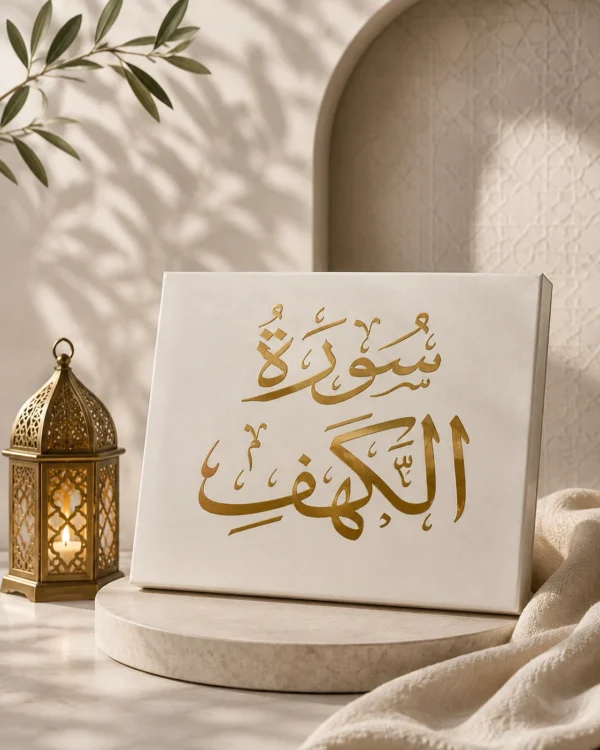 سُورَةُ
الكَهفِ